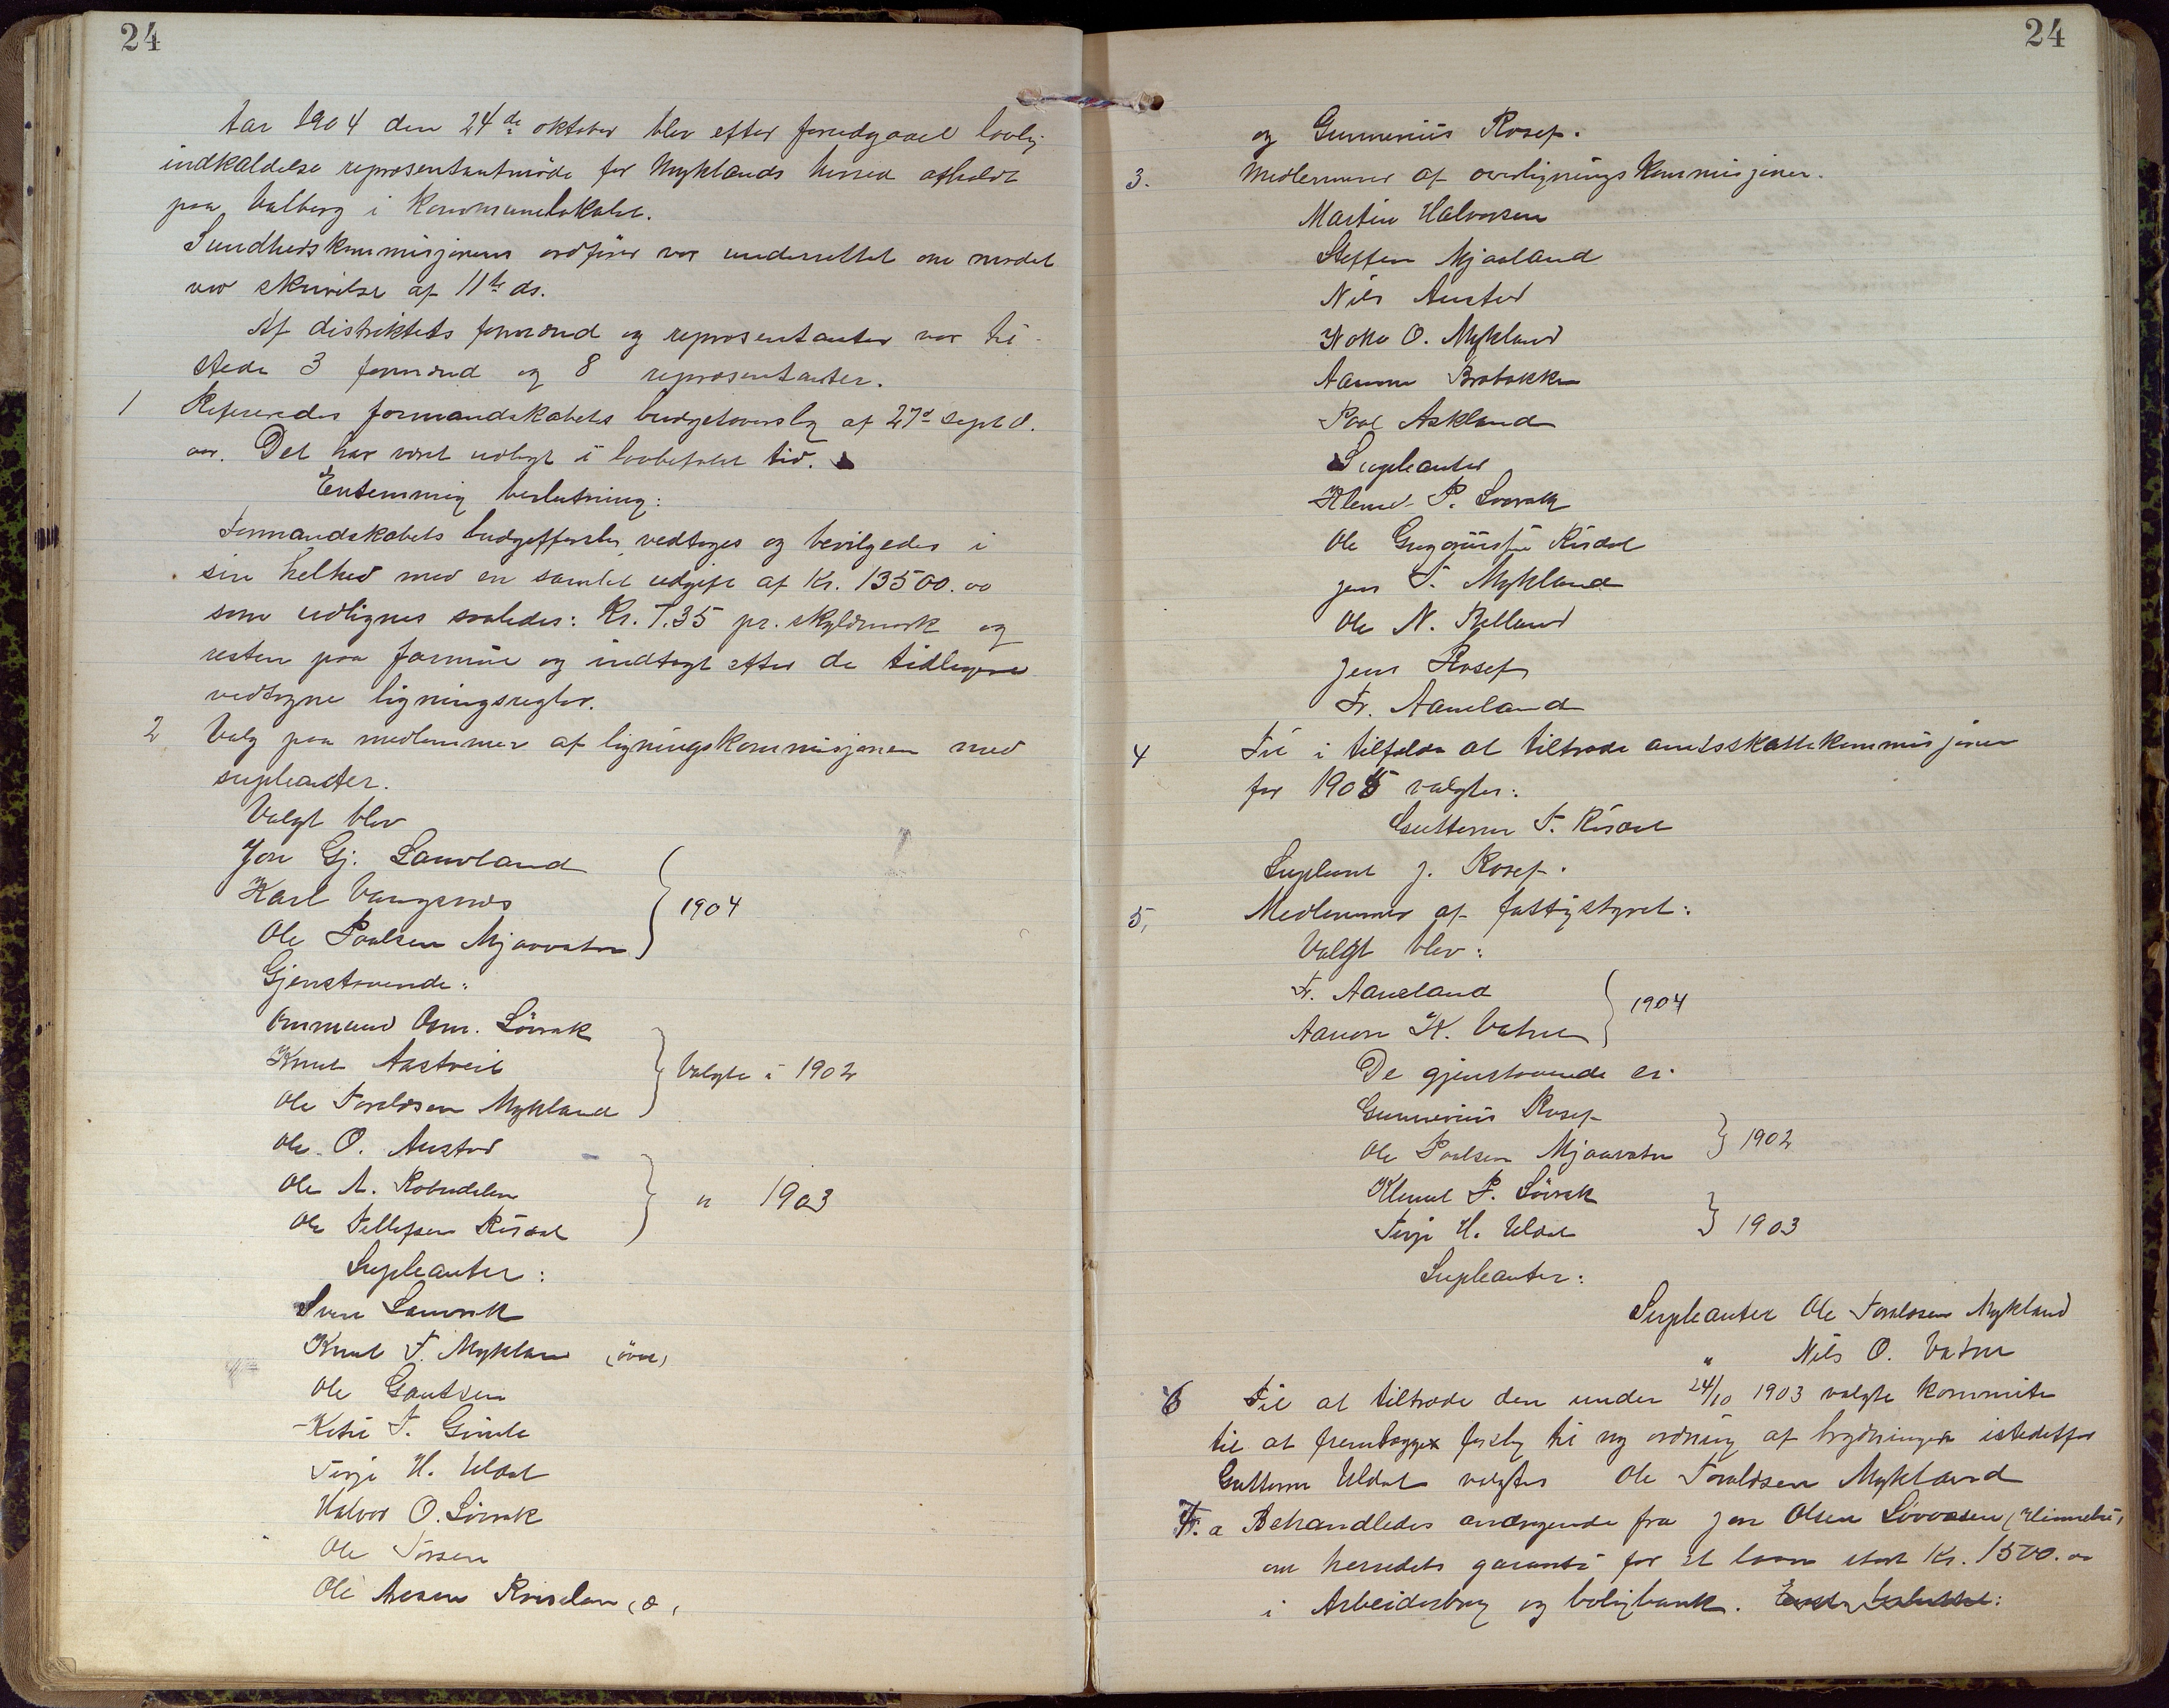 24
Aar 1904 den 24de oktober blev efter forudgaael lovlig
indkaldelse repræsentantmöde for Myklands herred afholdt
paa Valberg i Kommunelokalet.
Sundhedskommisjonens ordfører var underrettet om mødet
ved skrivelse af 11te ds.
Af distriktets formænd og repræsentanter var til-
stede 3 formænd og 8 repræsentanter.
1 Refereredes formandskabets budgetoverslag af 27de sept d.
aar. Det har været udlagt i lovbefalet tid.
Enstemmig beslutning:
Formandskabets budgetforslag vedtoges og bevilgedes i
sin helhed med en samlet udgift af Kr. 13500.00
som udlignes saaledes: Kr. 7.35 pr. skyldmark og
resten paa formue og indtægt efter de tidligere
vedtagne ligningsregler.
2 Valg paa medlemmer af ligningskommisjonen med
supleanter.
Valgt blev
Jon Gj. Lauvland
Karl Vangsnes
Ole Paalsen Mjaavatn } 1904
Gjenstaaende:
Ommund Osm. Løvrak
Knut Aastveit
Ole Taraldsen Mykland } Valgte i 1902
Ole O. Austad
Ole A. Robudalen
Ole Tellefsen Risdal } " 1903
Supleanter:
Sven Lauvrak
Knut T. Mykland (övre)
Ole Gautsen
Ketil T. Gimle
Terje H. Uldal
Halvor O. Lövrak
Ole Torsen
Ole Aasen
24
og Gunnerius Rosef.
3. Medlemmer af overligningskommisjonen.
Martin Halvorsen
Steffen Mjaaland
Nils Austad
O. Mykland
Aanon Brobakken
Paal Askland
Supleanter
Klemet P. Lovrak
Ole Gregoriusen Risdal
Jens T. Mykland
Ole N. Belland
Jens Rosef
Fr. Aaneland
4 Til i tilfælde at tiltræde amtsskattekommisjonen
for 1905 valgtes:
Guttorm T. Risdal
Supleant J. Rosef.
5, Medlemmer af fattigstyret:
Valgt blev:
Fr. Aaneland
Aanon K. Vatne } 1904
De gjenstaaende er:
Gunnerius Rosef
Ole Paalsen Mjaavatn } 1902
Klemet P. Lövrak
Terje H. Uldal } 1903
Supleanter:
Supleanter Ole Taraldsen Mykland
" Nils O. Vatne
6 Til at tiltræde den under 24/10 1903 valgte kommite
til at fremlægge forslag til ny ordning af brydningen istedetfor
Guttorm Uldal valgtes Ole Taraldsen Mykland
7. a Behandledes andragende fra Jon Olsen Lövaasen (Himmelsü)
om herredets garanti for et laan stort Kr. 1500.00
i Arbeiderbrug og boligbank. Enst. besluttet: